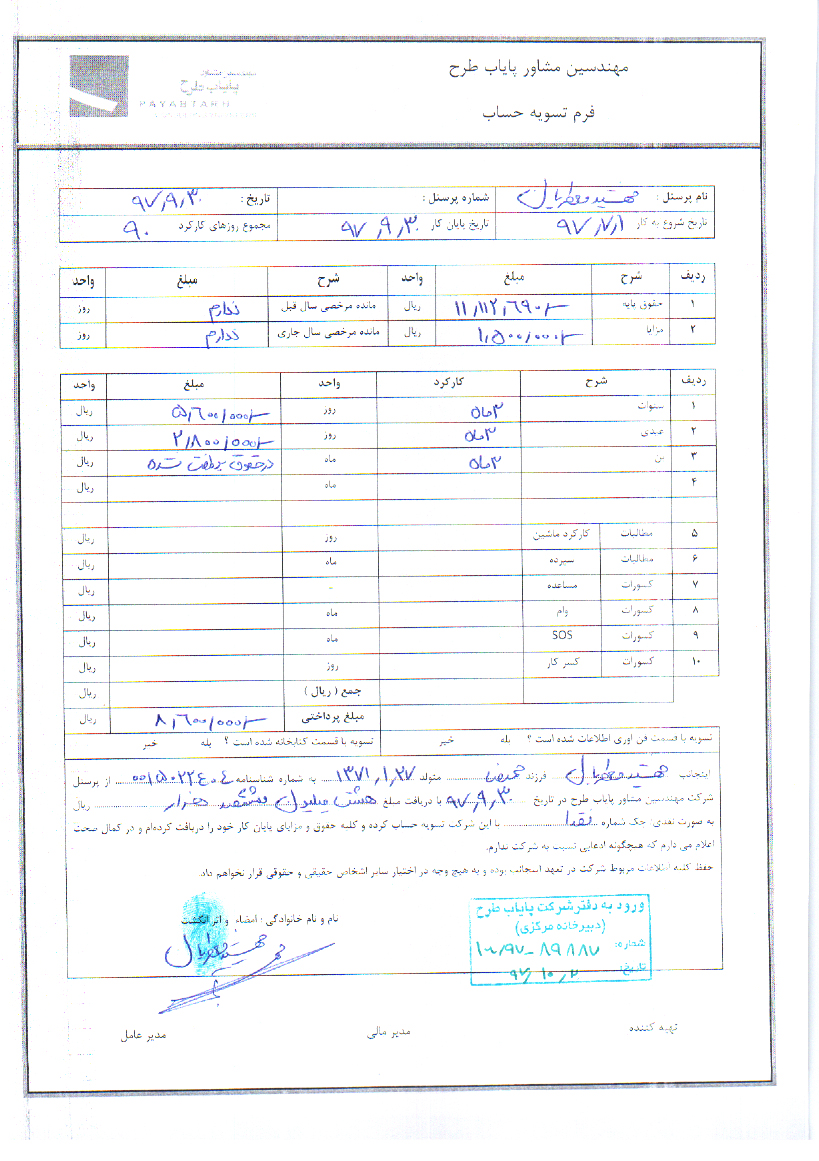 مهندسین مشاور پایاب طرح
پایاب طرح
PAYABTARH
فرم تسویه حساب
نام پرسنل : شماره پرسنل : تاریخ : ۹۷٫۹٫۳۰
تاریخ شروع به کار ۹۷٫۷٫۱ تاریخ پایان کار ۹۷٫۹٫۳۰ مجموع روزهای کارکرد ۹۰
ردیف شرح مبلغ واحد شرح مبلغ واحد
۱ حقوق پایه ۱۱٫۱۱۲٫۶۹۰ ریال مانده مرخصی سال قبل ندارم روز
۲ مزایا ۱٫۵۰۰٫۰۰۰ ریال مانده مرخصی سال جاری ندارم روز
ردیف شرح کارکرد واحد مبلغ واحد
۱ سنوات ۳ماه روز ۵٫۶۰۰٫۰۰۰ ریال
۲ عیدی ۳ماه روز ۲٫۸۰۰٫۰۰۰ ریال
۳ بن ۳ماه ماه درحقوق شده ریال
۴ ماه ریال
۵ مطالبات کارکرد ماشین روز ریال
۶ مطالبات سپرده ماه ریال
۷ کسورات مساعده - ریال
۸ کسورات وام ماه ریال
۹ کسورات SOS ماه ریال
۱۰ کسورات کسر کار روز ریال
جمع ( ریال ) ریال
مبلغ پرداختی ۸٫۶۰۰٫۰۰۰ ریال
تسویه با قسمت فن آوری اطلاعات شده است ؟ بله خیر تسویه با قسمت کتابخانه شده است ؟ بله خیر
اینجانب فرزند متولد ۱۳۷۱٫۱٫۲۷ به شماره شناسنامه از پرسنل
شرکت مهندسین مشاور پایاب طرح در تاریخ ۹۷٫۹٫۳۰ با دریافت مبلغ هشت میلیون ششصد هزار ریال
به صورت نقدی/ چک شماره نقدا با این شرکت تسویه حساب کرده و کلیه حقوق و مزایای پایان کار خود را دریافت کرده‌ام و در کمال صحت
اعلام می دارم که هیچگونه ادعایی نسبت به شرکت ندارم.
حفظ کلیه اطلاعات مربوط شرکت در تعهد اینجانب بوده و به هیچ وجه در اختیار سایر اشخاص حقیقی و حقوقی قرار نخواهم داد.
نام و نام خانوادگی : امضاء و اثر انگشت
ورود به دفتر شرکت پایاب طرح
(دبیرخانه مرکزی)
شماره: ۱۰-۹۷-۸۹۸۸۷
تاریخ: ۹۷٫۱۰٫۲
تهیه کننده مدیر مالی مدیر عامل